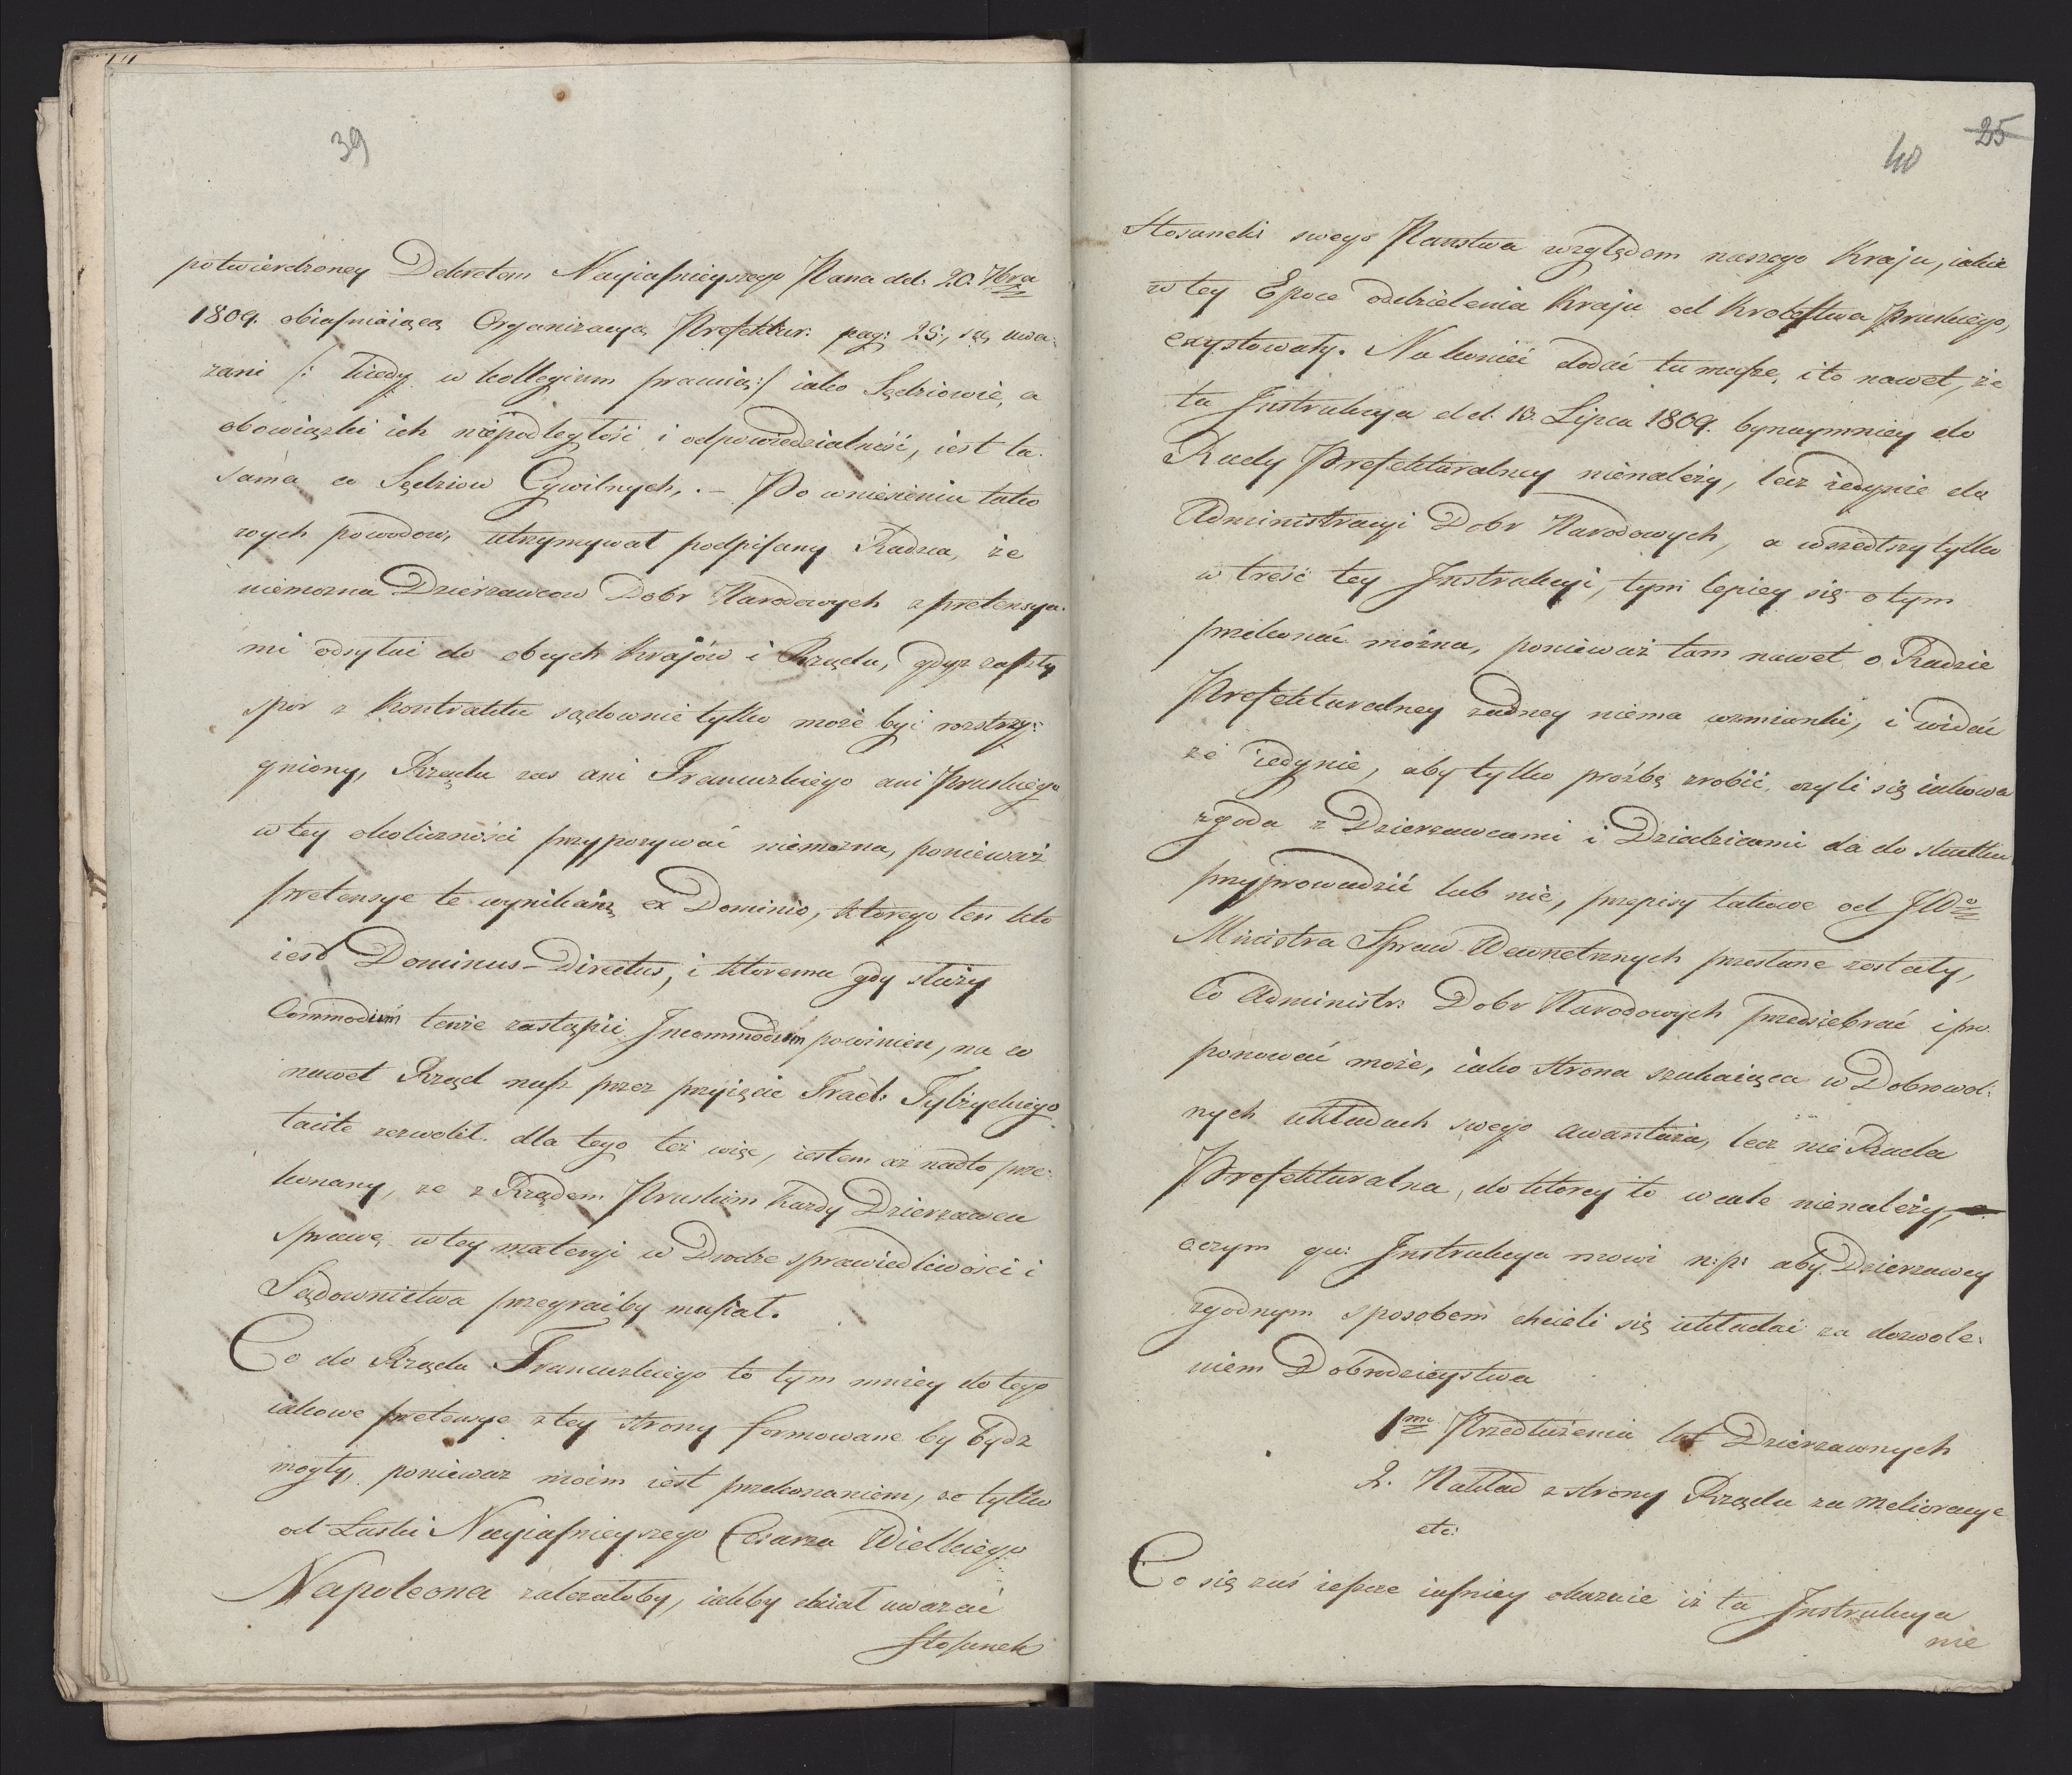 39
potwierdzoney Dekretem Nayiaśnieyszego Pana dd: 20. Xbra
1809. obiaśniaiącą Organizacyą Prefektur: pag: 25, są uwa:
zani /: kiedy w kollegium pracuią :/ iako Sędziowie, a
obowiązki ich niepodległość i odpowiedzialność, iest ta
sama co Sędziow Cywilnych. – Po wniesieniu tako
wych powodow, utrzymywał podpisany Radca, że
niemozna Dzierzawcow Dobr Narodowych z pretensya:
mi odsyłać do obcych Krajów i Rządu, gdyz zaszły
spór z Kontraktu sądownie tylko może być rozstrzy:
gniony, Rządu zas ani Francuzkiego ani Pruskiego
w tey okoliczności przypozywać niemozna, ponieważ
pretensye te wynikaią ex Dominio, ktorego ten kto
iest Dominus-Directus, i ktoremu gdy służy
Commodum tenże zastąpić Incommodum powinien, na co
nawet Rząd nasz przez przyięcie Tract: Tylżyckiego
tacite zezwolił. dla tego też więc, iestem aż nadto prze:
konany, ze z Rządem Pruskim kazdy Dzierzawca
sprawę w tey materyi w Drodze sprawiedliwości i
Sądownictwa przegraćby musiał.
Co do Rządu Francuzkiego to tym mniey do tego
iakowe pretensye z tey strony formowane by bydz
mogły, poniewaz moim iest przekonaniem, ze tylko
od Łaski Nayiaśnieyszego Cesarza Wielkiego
Napoleona zalezałoby, iakby chciał uwazać
Stosunek
25
40
Stosunki swego Panstwa względem naszego Kraju, iakie
w tey Epoce oddzielenia Kraju od Krolestwa Pruskiego,
exystowały. Nakonieć dodać tu muszę, i to nawet, że
ta Instrukcya dd. 13. Lipca 1809. bynaymniey do
Rady Prefekturalney nienależy, lecz iedynie do
Administracyi Dobr Narodowych, a wszedłszy tylko
w treść tey Instrukcyi, tym lepiey się o tym
przekonać można, ponieważ tam nawet o Radzie
Prefekturalney zadney niema wzmianki, i widać
że iedynie, aby tylko próźbę zrobić, czyli się iakowa
zgoda z Dzierzawcami i Dziedzicami da do skutku
przyprowadzić lub nie, przepisy takowe od JWo
Ministra Spraw Wewnetrznych przesłane zostały,
Co Administr: Dobr Narodowych przedsiebrać i pro
ponować może, iako strona szukaiąca w Dobrowol:
nych układach swego awantażu, lecz nie Rada
Prefekturalna, do ktorey to wcale nienależy,
oczym qu: Instrukcya mowi n:p: aby Dzierzawcy
zgodnym sposobem chcieli się układać za dozwole:
niem Dobrodzieystwa
1mo Przedłużenia lat Dzierzawnych
2. Nakład z strony Rządu za melioracye
etc:
Co się zaś ieszcze iaśniey okazuie iż ta Instrukcya
nie